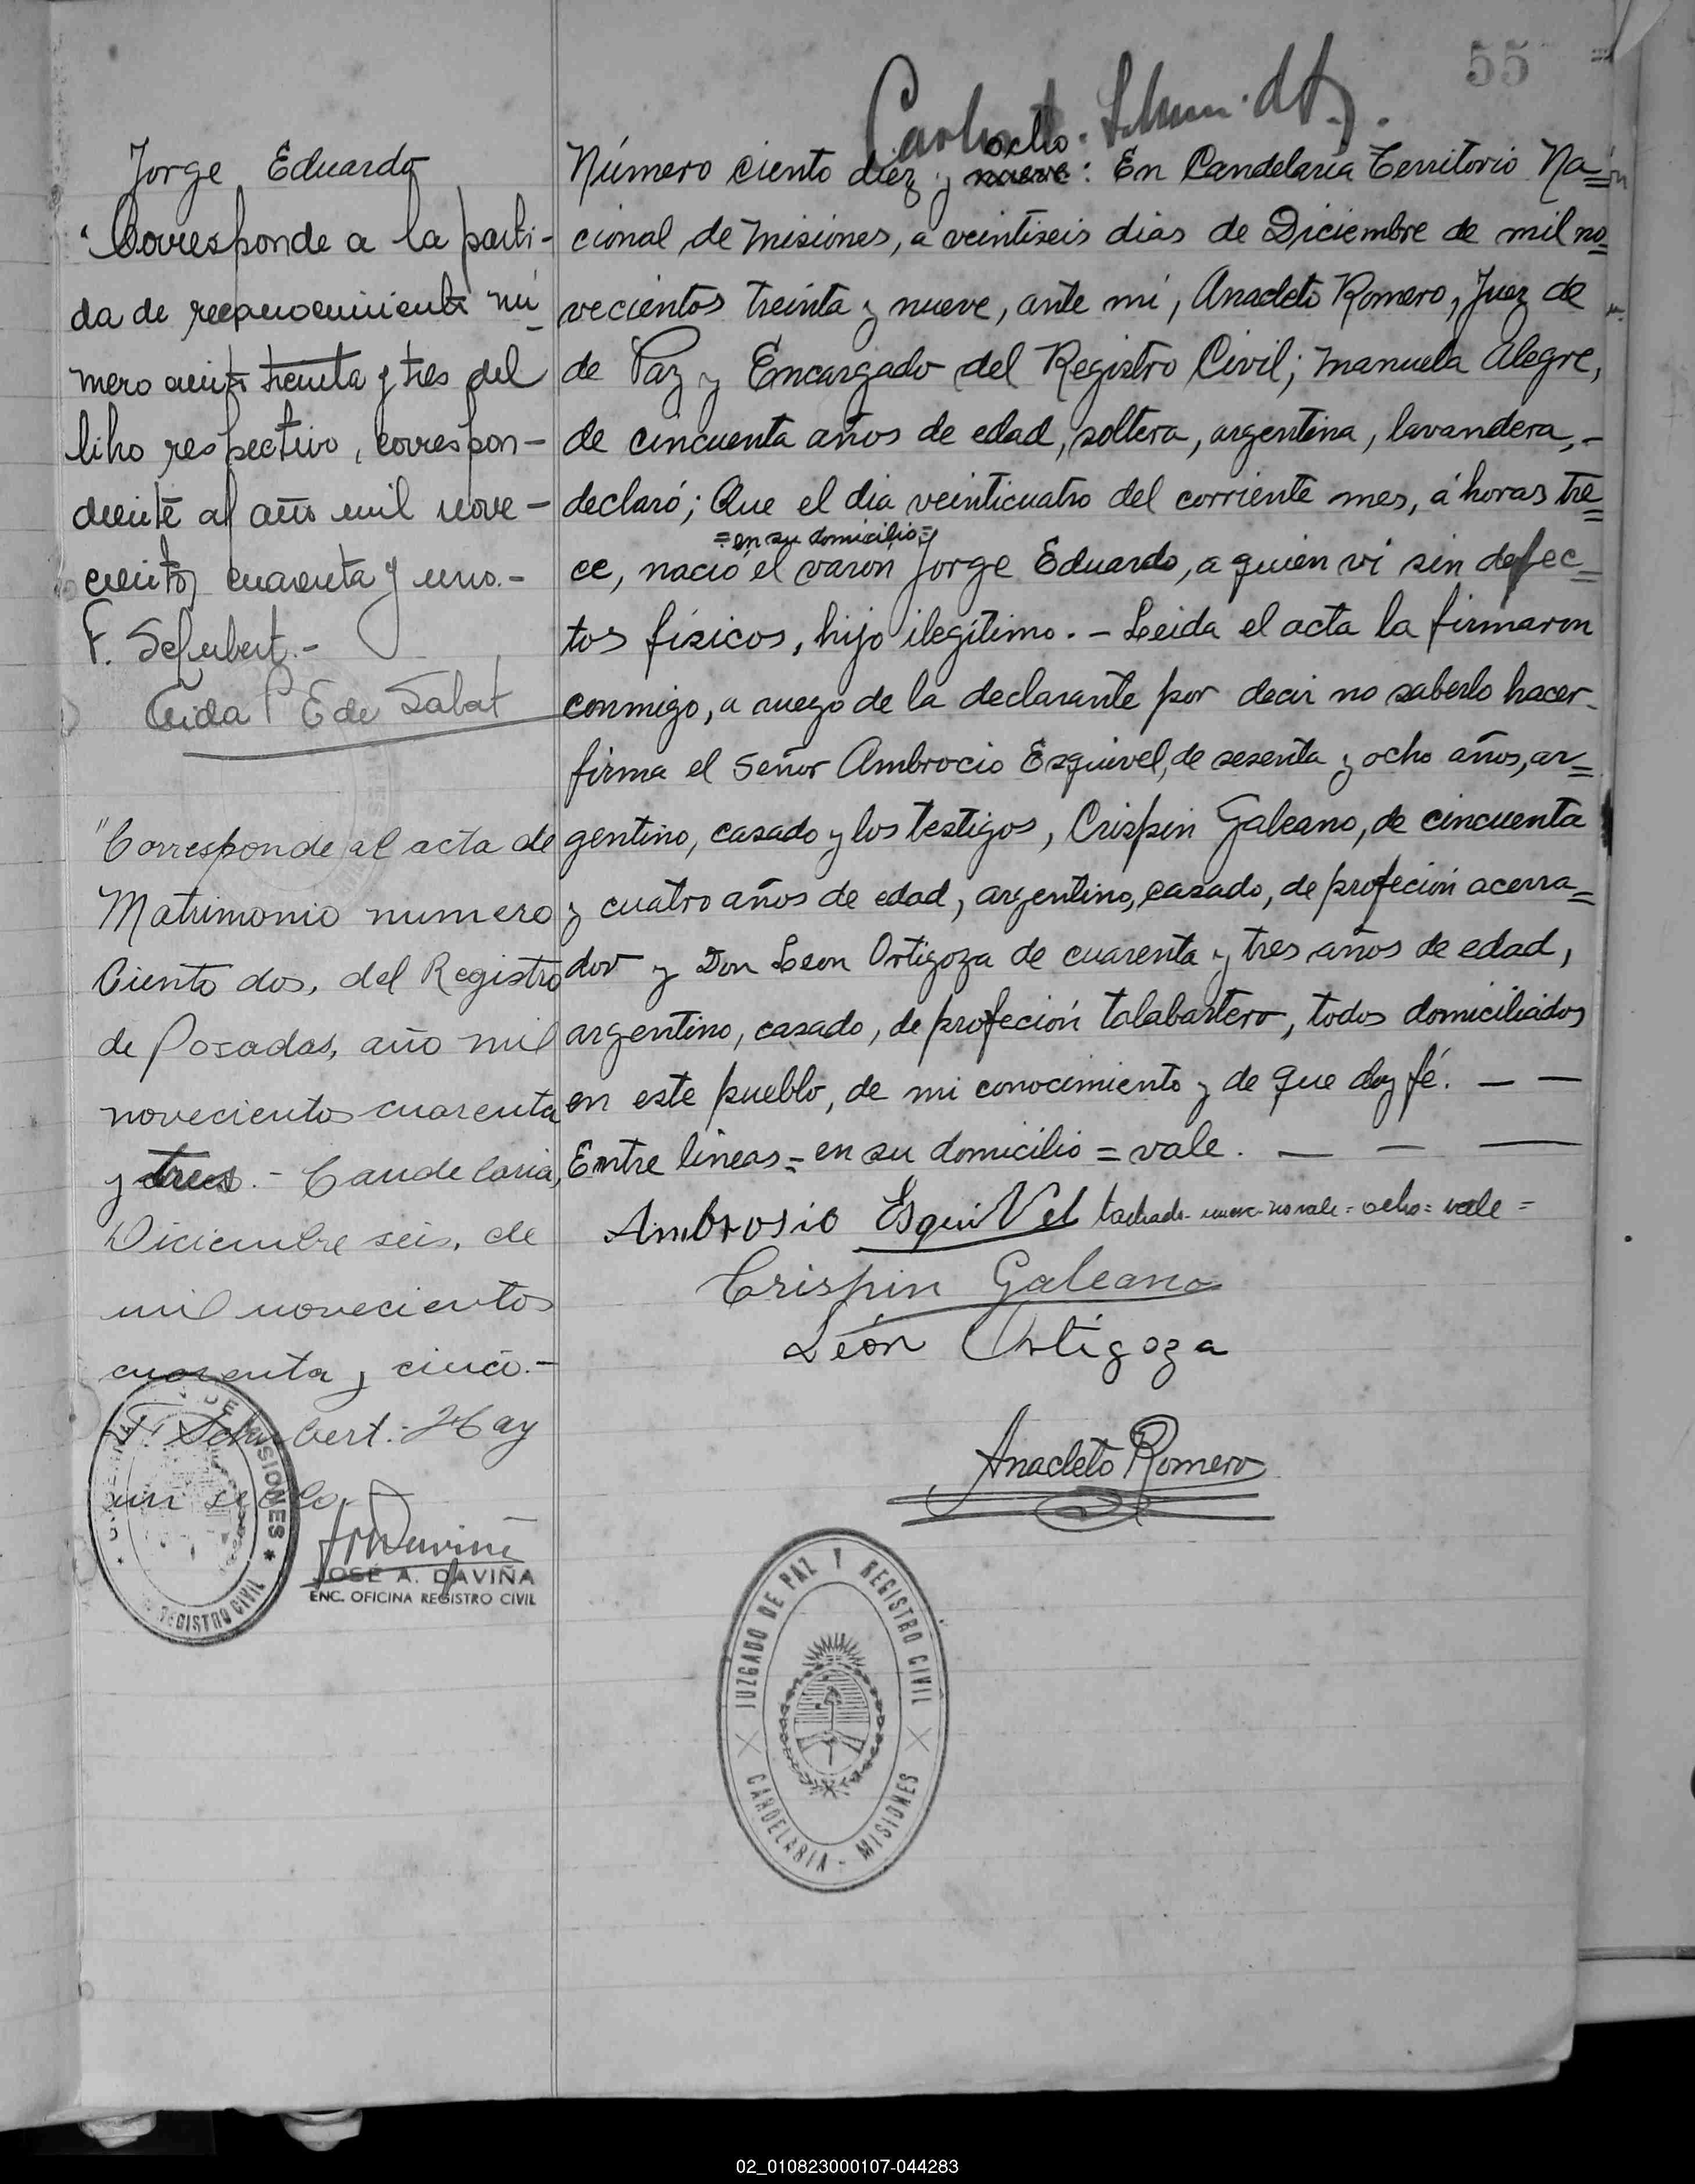 55
Carlos Schmidt.
Jorge Eduardo
"Corresponde a la parti-
da de reconocimiento nú
mero ciento treinta y tres del
libro respectivo, correspon-
diente al año mil nove-
cientos cuarenta y uno.-
F. Schubert.-
P E de Sabat
"Corresponde al acta de
Matrimonio numero
Ciento dos, del Registro
de Posadas, año mil
novecientos cuarenta
y tres.- Candelaria,
Diciembre seis, de
mil novecientos
cuarenta y cinco.-
F. Schubert.- Hay
un sello.
JOSÉ A. DAVIÑA
ENC. OFICINA REGISTRO CIVIL
DE MISIONES * REGISTRO CIVIL
ocho
Número ciento diez y nueve: En Candelaria Territorio Na=
cional de Misiones, a veintiseis dias de Diciembre de mil no=
vecientos treinta y nueve, ante mi, Anacleto Romero, Juez de
de Paz y Encargado del Registro Civil; Manuela Alegre,
de cincuenta años de edad, soltera, argentina, lavandera,-
declaró; Que el dia veinticuatro del corriente mes, á horas tre=
=en su domicilio=
ce, nació el varon Jorge Eduardo, a quien vi sin defec=
tos fisicos, hijo ilegitimo.- Leida el acta la firmaron
conmigo, a ruego de la declarante por decir no saberlo hacer-
firma el Señor Ambrocio Esquivel, de sesenta y ocho años, ar=
gentino, casado y los testigos, Crispin Galeano, de cincuenta
y cuatro años de edad, argentino, casado, de profeción acerra=
dor y Don Leon Ortigoza de cuarenta y tres años de edad,
argentino, casado, de profeción talabartero, todos domiciliados
en este pueblo, de mi conocimiento y de que doy fé. — —
Entre lineas = en su domicilio = vale. — — —
Ambrosio EsquiVel tachado - nueve - no vale = ocho = vale =
Crispin Galeano
León Ortigoza
Anacleto Romero
JUZGADO DE PAZ Y REGISTRO CIVIL
CANDELARIA - MISIONES
02_010823000107-044283